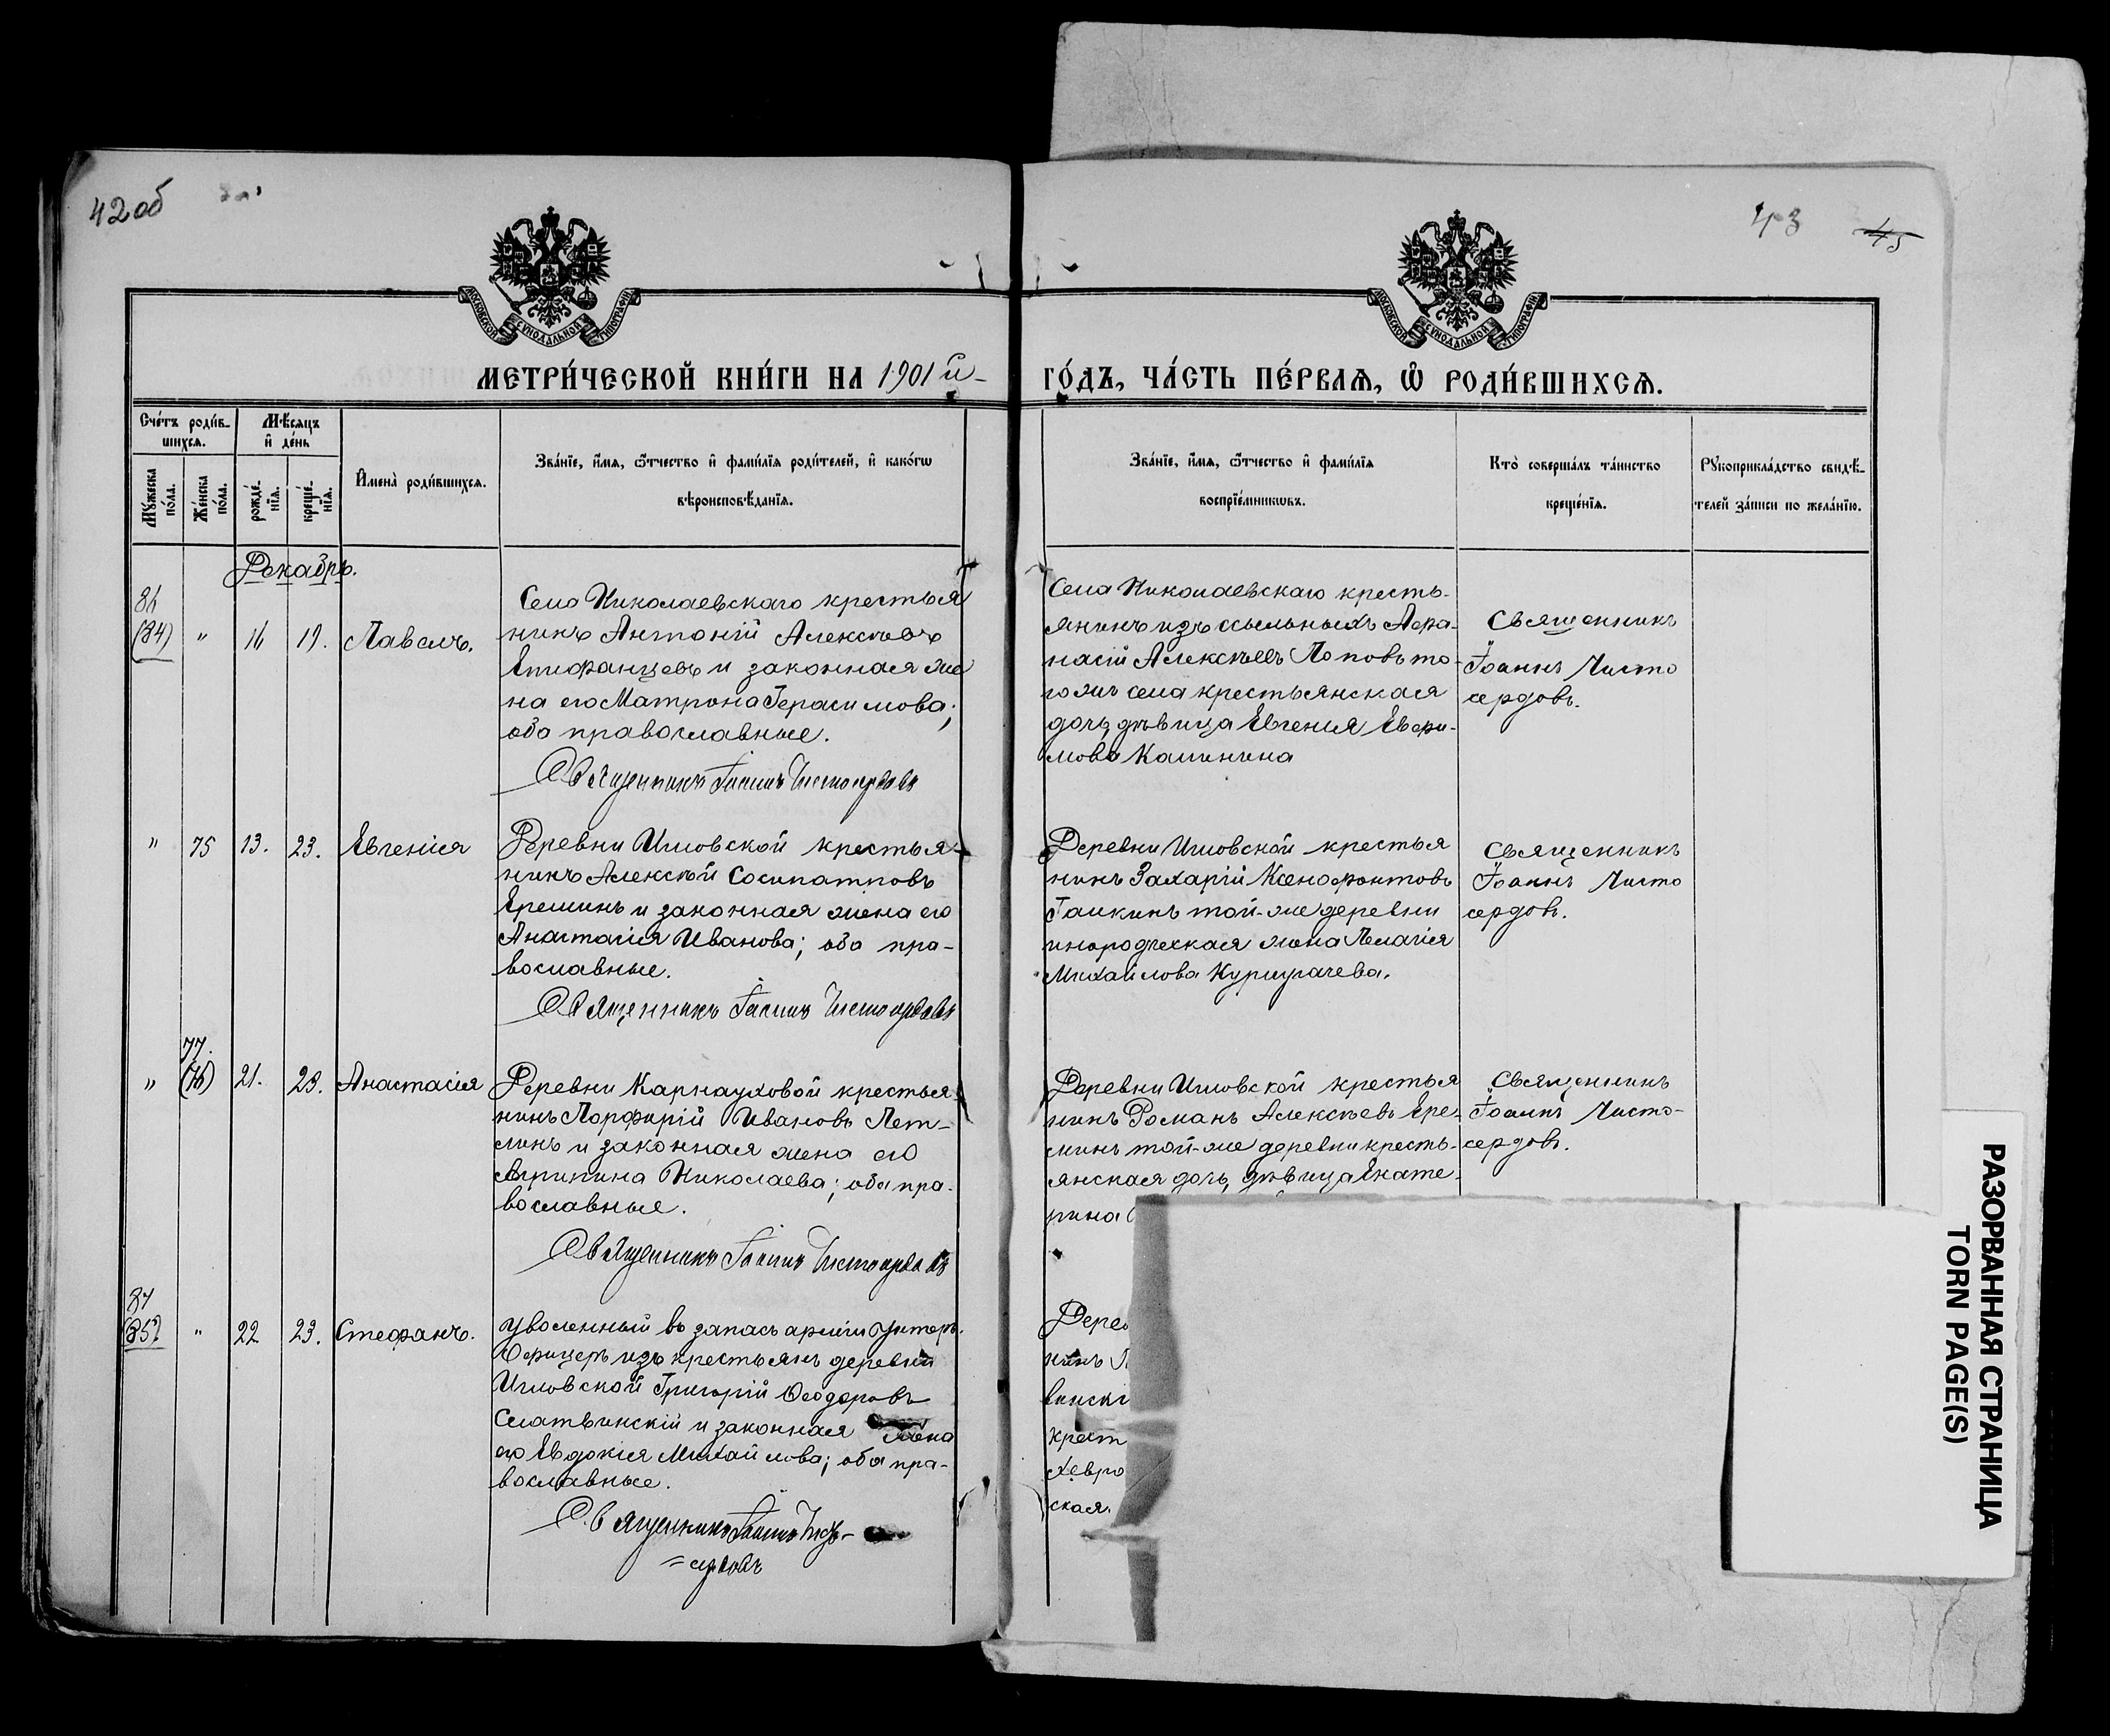 42 об
43
45
МОСКОВСКОЙ СѴНОДАЛЬНОЙ ТИПОГРАФІИ
МОСКОВСКОЙ СѴНОДАЛЬНОЙ ТИПОГРАФІИ
МЕТРИ́ЧЕСКОЙ КНИ́ГИ НА 1901 й
ГО́ДЪ, ЧА́СТЬ ПЕ́РВАѦ, Ѽ РОДИ́ВШИХСѦ.
Сче́тъ роди́в-
шихсѧ.
Мѣ́сѧцъ
и҆ де́нь
Мꙋ́жеска
по́ла.
Же́нска
по́ла.
рожде́-
нїѧ.
креще́-
нїѧ.
И҆мена̀ роди́вшихсѧ.
Зва́нїе, и҆́мѧ, ѻ҆́тчество и҆ фами́лїѧ роди́телей, и҆ како́гѡ
вѣроисповѣ́данїѧ.
Зва́нїе, и҆́мѧ, ѻ҆́тчество и҆ фами́лїѧ
воспрїе́мникѡвъ.
Кто̀ соверша́лъ та́инство
креще́нїѧ.
Рꙋкоприкла́дство свидѣ́-
телей за́писи по жела́нїю.
Декабрь.
(84) " 16 19. Павелъ.
Села Николаевскаго крестья
никъ Антоній Алексѣевъ
Епифанцевъ и законная же
на его Матрона Герасимова;
оба православные.
Священникъ Іоаннъ Чистосердовъ
Села Николаевскаго кресть-
янинъ изъ ссыльныхъ Афа-
насій Алексѣевъ Поповъ то-
го же села крестьянская
дочь, дѣвица Евгенія Евфи-
мова Калинина
Священникъ
Іоаннъ Чисто
сердовъ.
" 75 13. 23. Евгенія
Деревни Игловской крестья-
нинъ Алексѣй Сосипатровъ
Еремина и законная жена его
Анастасія Иванова; оба пра-
вославные.
Священникъ Іоаннъ Чистосердовъ
Деревни Игловской крестья
нинъ Захарій Ксенофонтовъ
Галкинъ той-же деревни
инородческая жена Пелагія
Михайлова Куршугачева.
Священникъ
Іоаннъ Чисто
сердовъ.
77.
" (76) 21. 23. Анастасія
Деревни Карнауховой крестья-
нинъ Порфирій Ивановъ Пет-
линъ и законная жена его
Агрипина Николаева; оба пра-
вославные.
Священникъ Іоаннъ Чистосердовъ
Деревни Игловской крестья
нинъ Романъ Алексѣевъ Ере-
минъ той-же деревни кресть-
янская дочь, дѣвица Екате-
рина
Священникъ
Іоаннъ Чисто-
сердовъ.
87
(85) " 22 23. Стефанъ.
Уволенный въ запасъ арміи Унтеръ-
Офицеръ изъ крестьянъ деревни
Игловской Григорій Ѳеодоровъ
Слатвинскій и законная жена
его Евдокія Михайлова; оба пра-
вославные.
Священникъ Іоаннъ Чисто-
=сердовъ
Дерев
нинъ
винскі
крест
Хевро
ская.
РАЗОРВАННАЯ СТРАНИЦА
TORN PAGE(S)